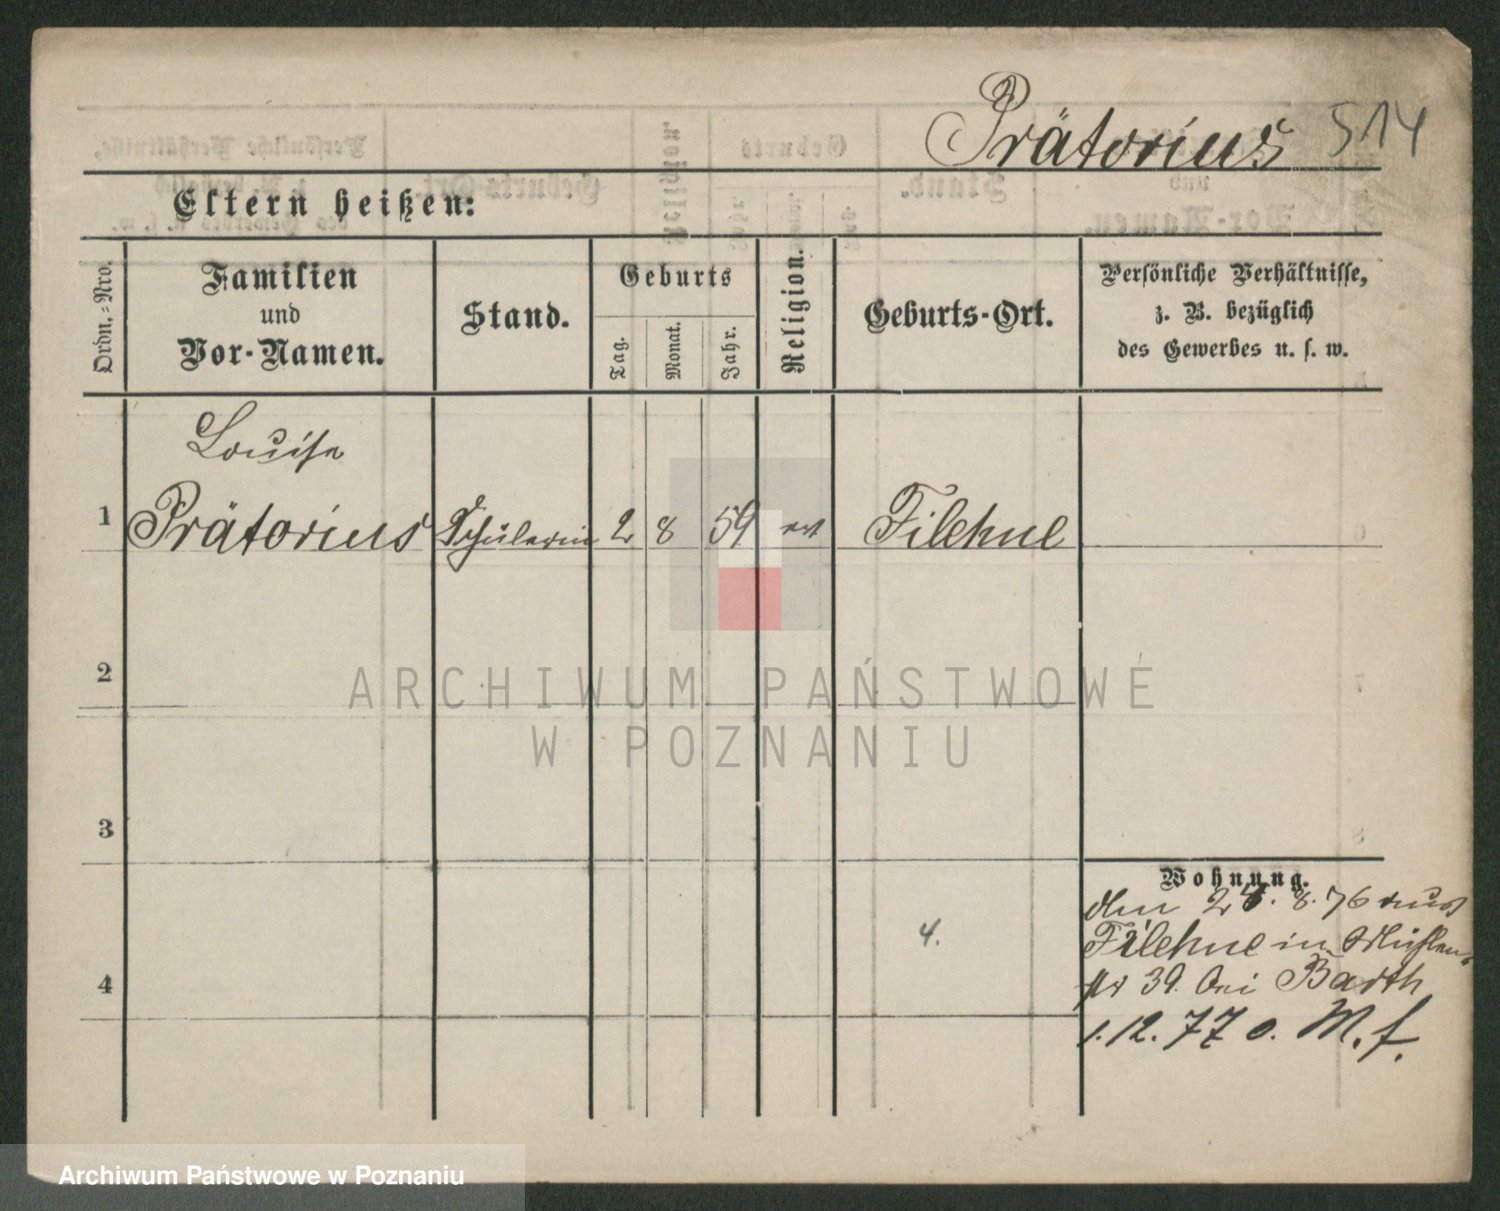 Prätorius 514
Eltern heißen:
Ordn.-Nro.
Familien
und
Vor-Namen.
Stand.
Geburts
Tag.
Monat.
Jahr.
Religion.
Geburts-Ort.
Persönliche Verhältnisse,
z. B. bezüglich
des Gewerbes u. s. w.
Louise
1 Prätorius Schülerin 2 8 59 ev Filehne
2
ARCHIWUM PAŃSTWOWE
W POZNANIU
3
Wohnung.
den 25. 8. 76 aus
4.
Filehne in Mühlen
4 str 39. bei Barth
1.12.77 o. M. f.
Archiwum Państwowe w Poznaniu